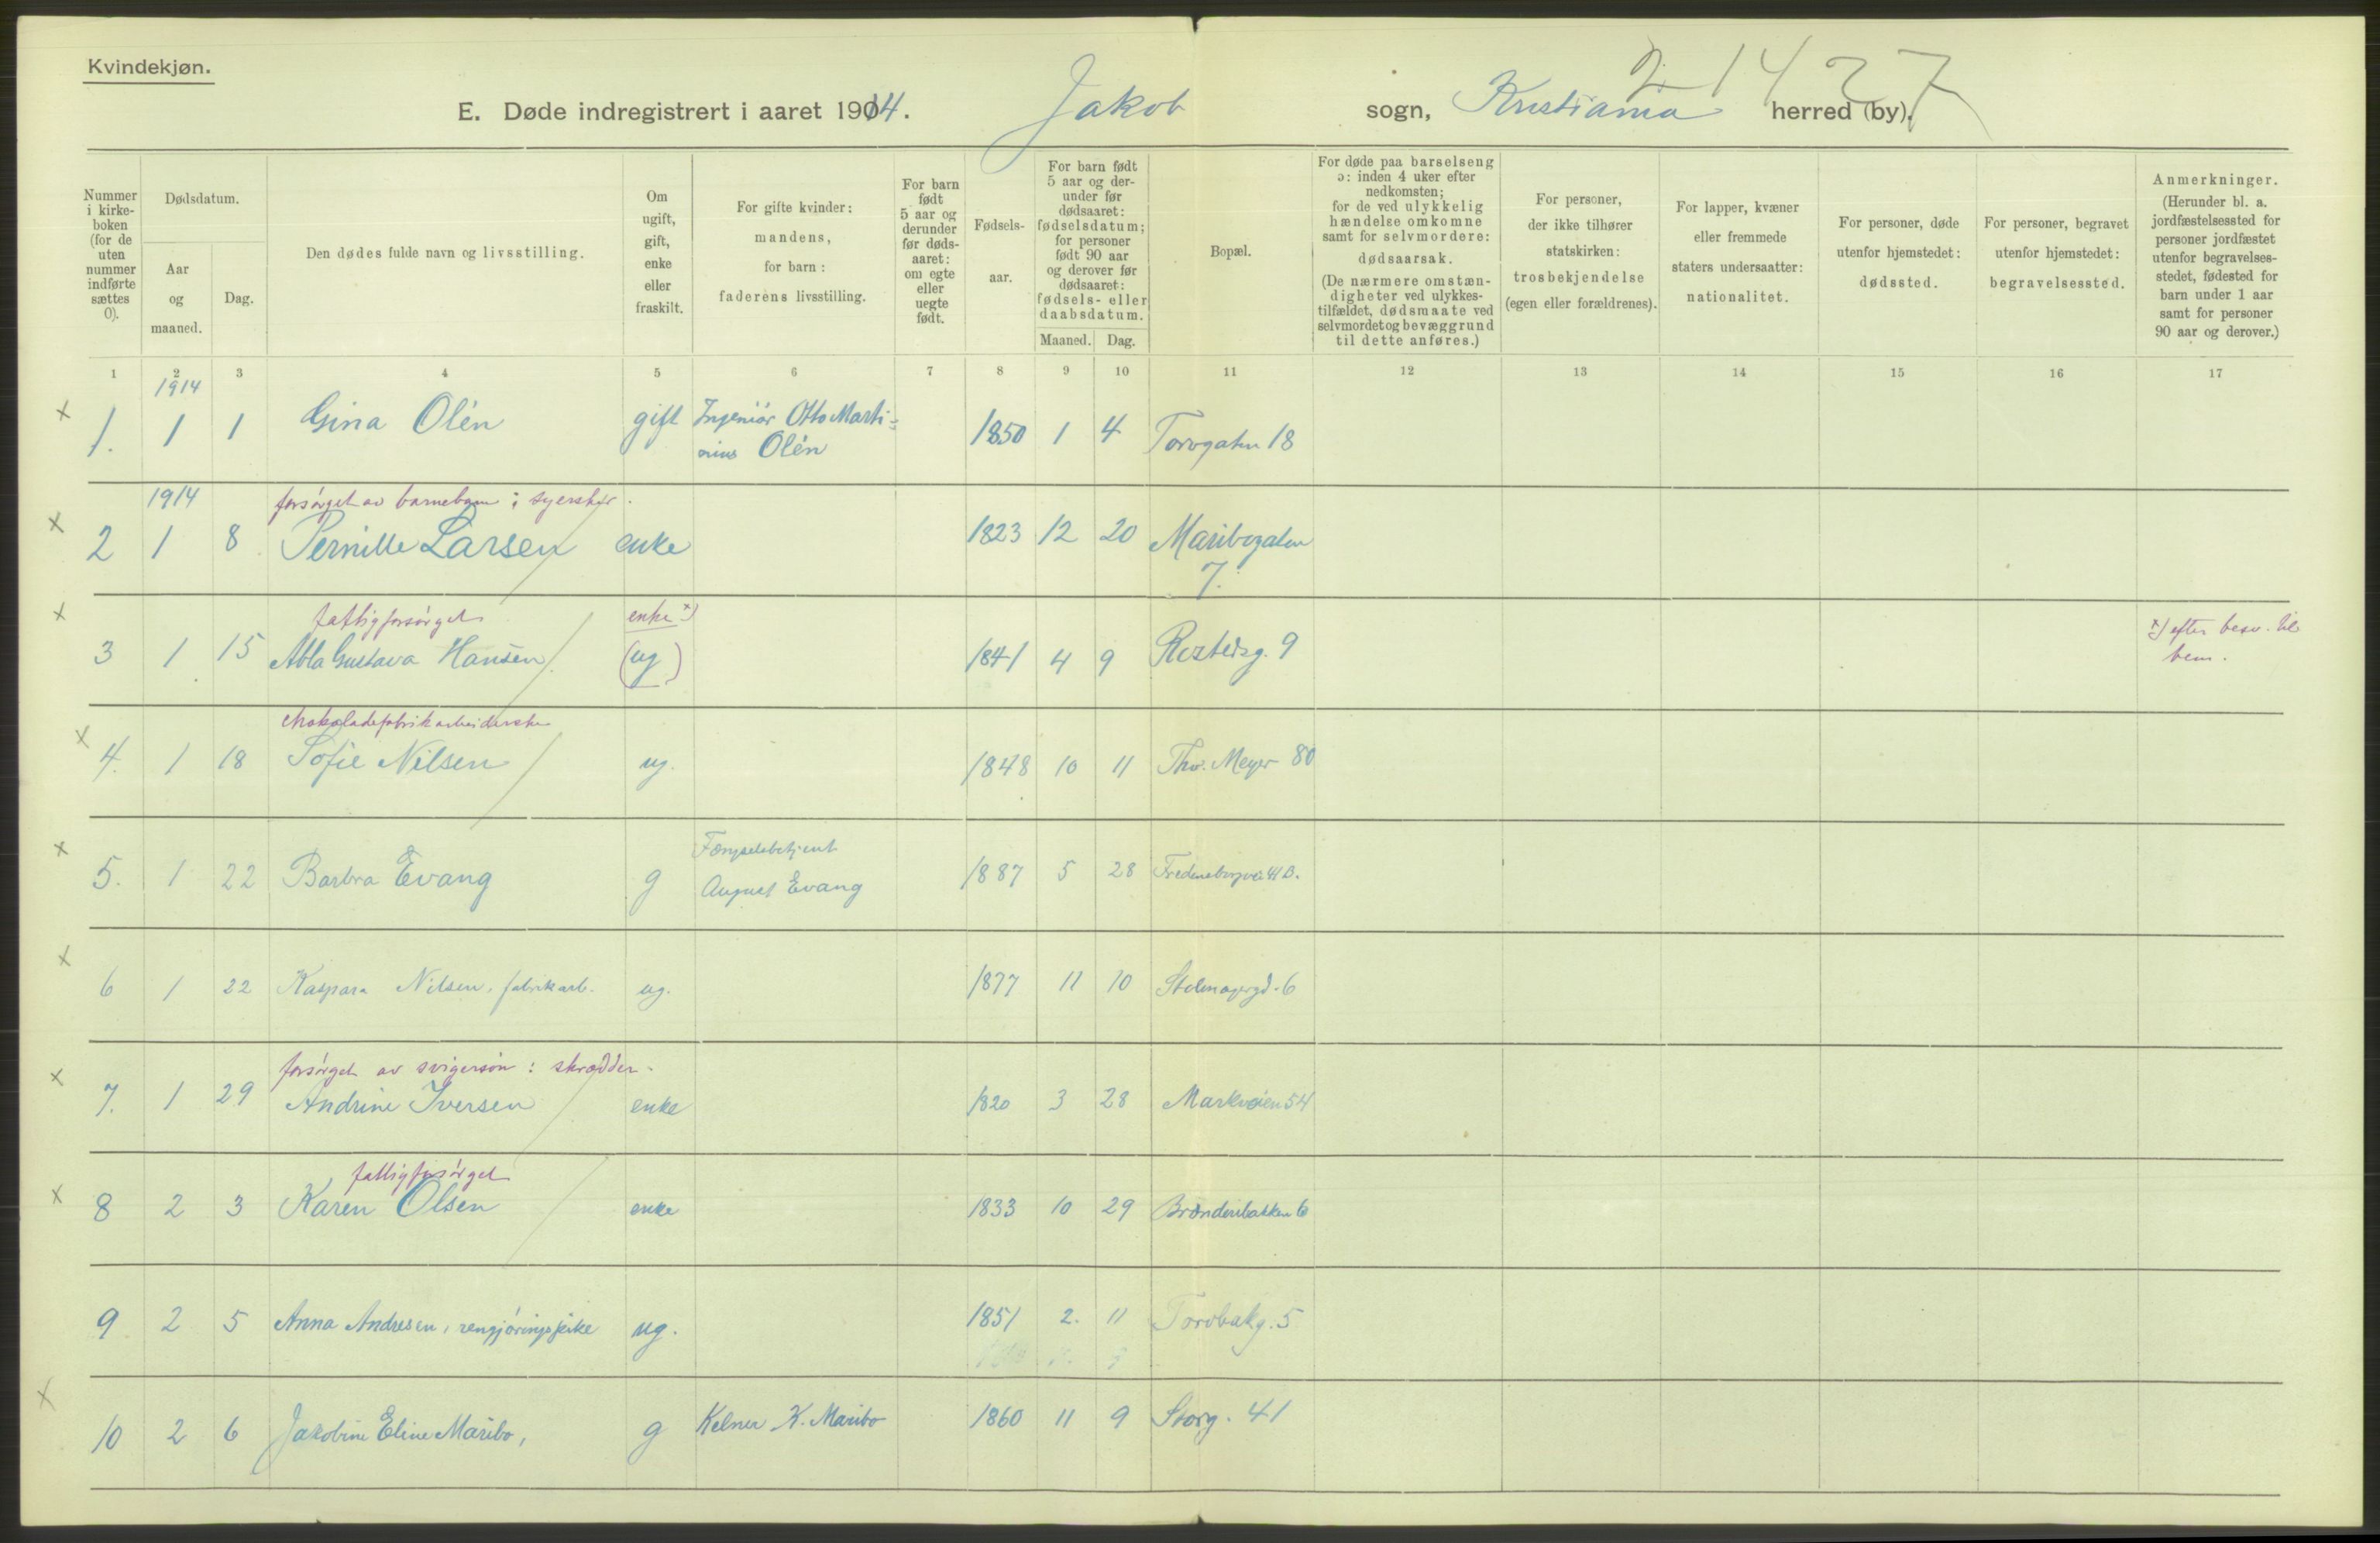 Kvindekjøn.
21427
E. Døde indregistrert i aaret 1914. Jakob sogn, Kristiania herred (by).
Nummer i kirke-boken (for de uten nummer indførte sættes 0).
Dødsdatum.
Aar og maaned.
Dag.
Den dødes fulde navn og livsstilling.
Om ugift, gift, enke eller fraskilt.
For gifte kvinder: mandens, for barn: faderens livsstilling.
For barn født 5 aar og derunder før døds-aaret: om egte eller uegte født.
Fødsels-aar.
For barn født 5 aar og der-under før dødsaaret: fødselsdatum; for personer født 90 aar og derover før dødsaaret: fødsels- eller daabsdatum.
Maaned. Dag.
Bopæl.
For døde paa barselseng ɔ: inden 4 uker efter nedkomsten; for de ved ulykkelig hændelse omkomne samt for selvmordere: dødsaarsak. (De nærmere omstæn-digheter ved ulykkes-tilfældet, dødsmaate ved selvmordet og bevæggrund til dette anføres.)
For personer, der ikke tilhører statskirken: trosbekjendelse (egen eller forældrenes).
For lapper, kvæner eller fremmede staters undersaatter: nationalitet.
For personer, døde utenfor hjemstedet: dødssted.
For personer, begravet utenfor hjemstedet: begravelsessted.
Anmerkninger. (Herunder bl. a. jordfæstelsessted for personer jordfæstet utenfor begravelses-stedet, fødested for barn under 1 aar samt for personer 90 aar og derover.)
1 2 3 4 5 6 7 8 9 10 11 12 13 14 15 16 17
1914
x 1. 1 1 Gina Olén gift Ingeniør Otto Marti= 1850 1 4 Torvgaten 18
nius Olén
1914 forsørget av barnebarn: syerske.
x 2 1 8 Pernille Larsen enke 1823 12 20 Maribogaten
7.
x fattigforsørget enke x) x) efter besv. til
3 1 15 Abla Gustava Hansen (ug) 1841 4 9 Rostedsg. 9 bem.
chokoladefabrikarbeiderske
x 4. 1 18 Sofie Nilsen ug. 1848 10 11 Thv. Meyer 80
Fængselsbetjent
x 5. 1 22 Barbra Evang g August Evang 1887 5 28 Fredensborgvei 41 B.
x 6 1 22 Kaspara Nilsen, fabrikarb. ug. 1877 11 10 Stolmagergd. 6
forsørget av svigersøn: skrædder.
x 7. 1 29 Andrine Iversen enke 1820 3 28 Markveien 54
fattigforsørget
x 8 2 3 Karen Olsen enke 1833 10 29 Brænderibakken 6
9 2 5 Anna Andresen, rengjøringspike ug. 1851 2. 11 Torvbakg. 5
x 10 2 6 Jakobine Eline Maribo, g Kelner K. Maribo 1860 11 9 Storg. 41